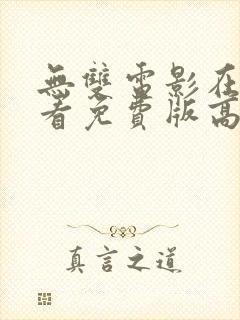 無雙電影在
看免費版高
真言之道